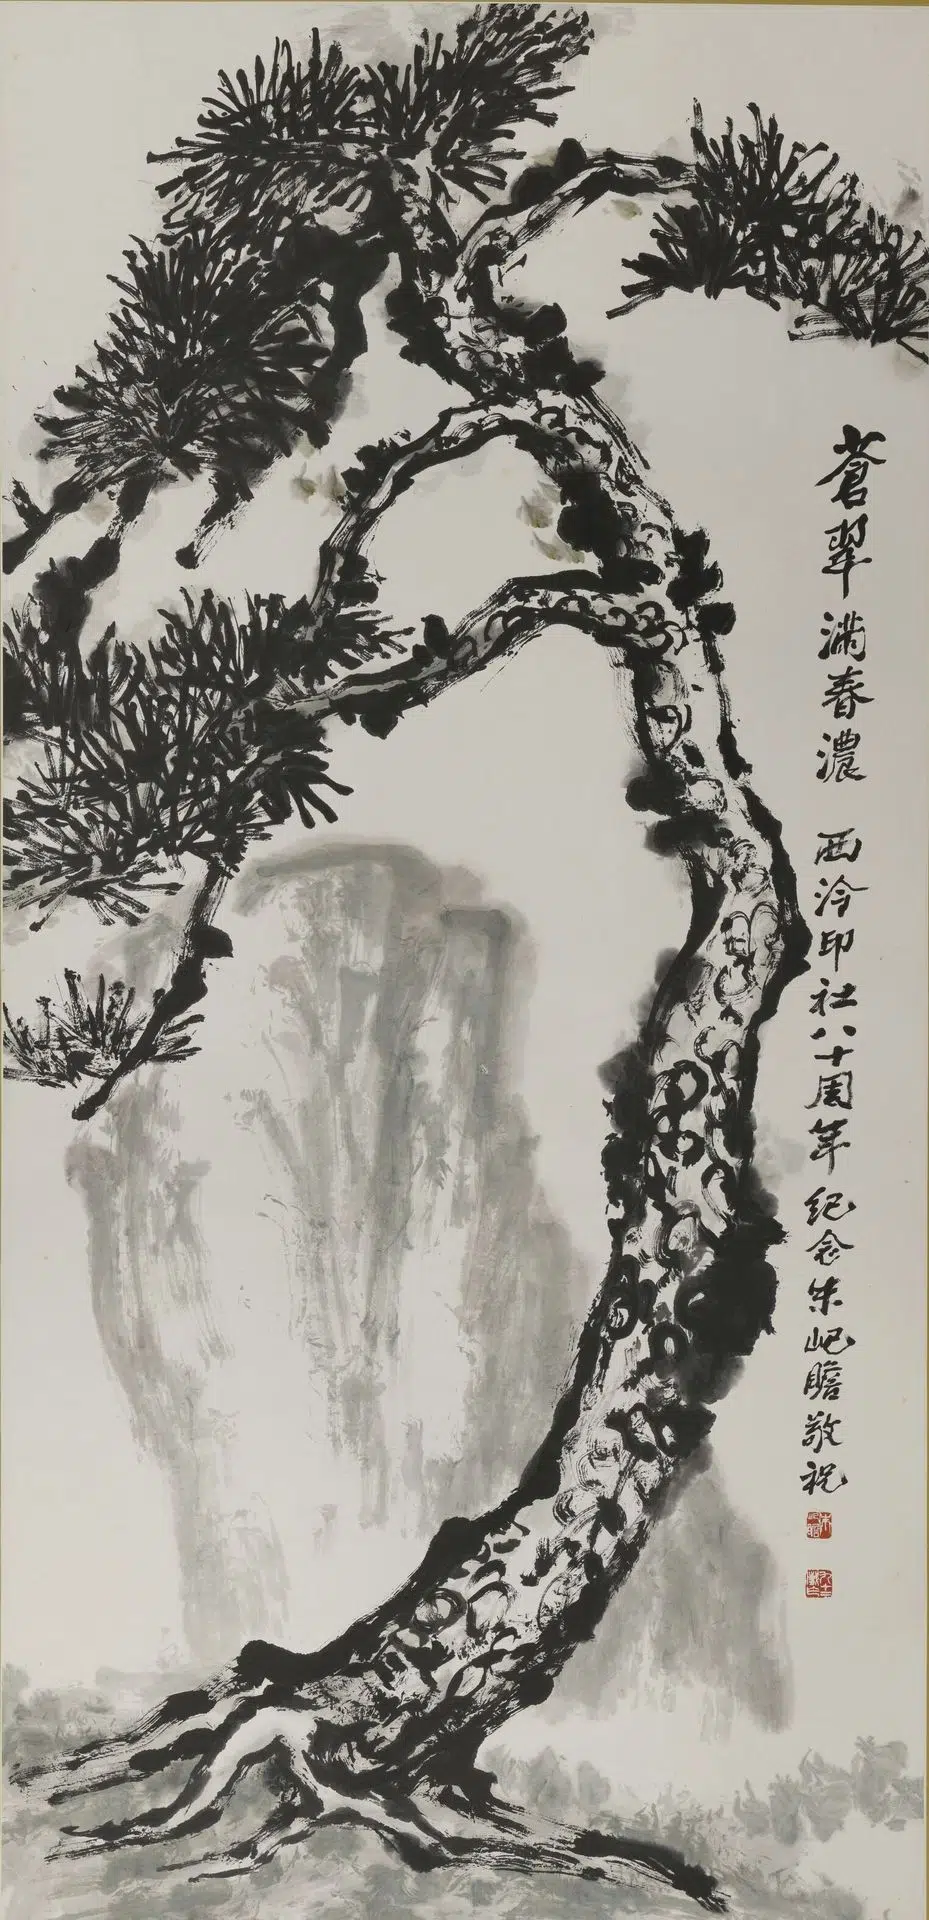 蒼翠满春濃 西泠印社八十周年纪念朱屺瞻敬祝
朱屺瞻